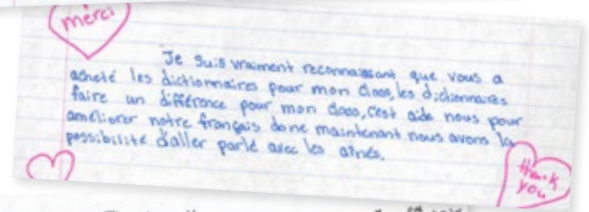 merci
Je suis vraiment reconnaissant que vous a
acheté les dictionnaires pour mon class, les dictionnaires
faire un différence pour mon class, c'est aide nous pour
améliorer notre français donc maintenant nous avons la
possibilité d'aller parlé avec les aînés.
Thank
you